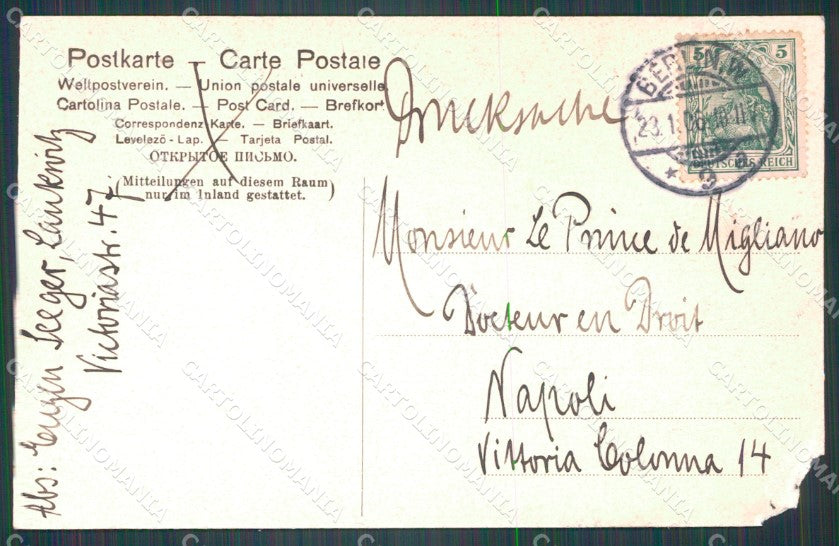 Postkarte — Carte Postale
Weltpostverein. — Union postale universelle
Cartolina Postale. — Post Card. — Brefkort
Correspondenz Karte. — Briefkaart.
Levelezö-Lap. — Tarjeta Postal.
ОТКРЫТОЕ ПИСЬМО.
(Mitteilungen auf diesem Raum
nur im Inland gestattet.)
Drucksache
BERLIN, W.
9
5 5
DEUTSCHES REICH
Monsieur Le Prince de Migliano
Docteur en Droit
Napoli
Vittoria Colonna 14
Abs: Eugen Seeger, Lankwitz
Victoriastr. 47
CARTOLINOMANIA